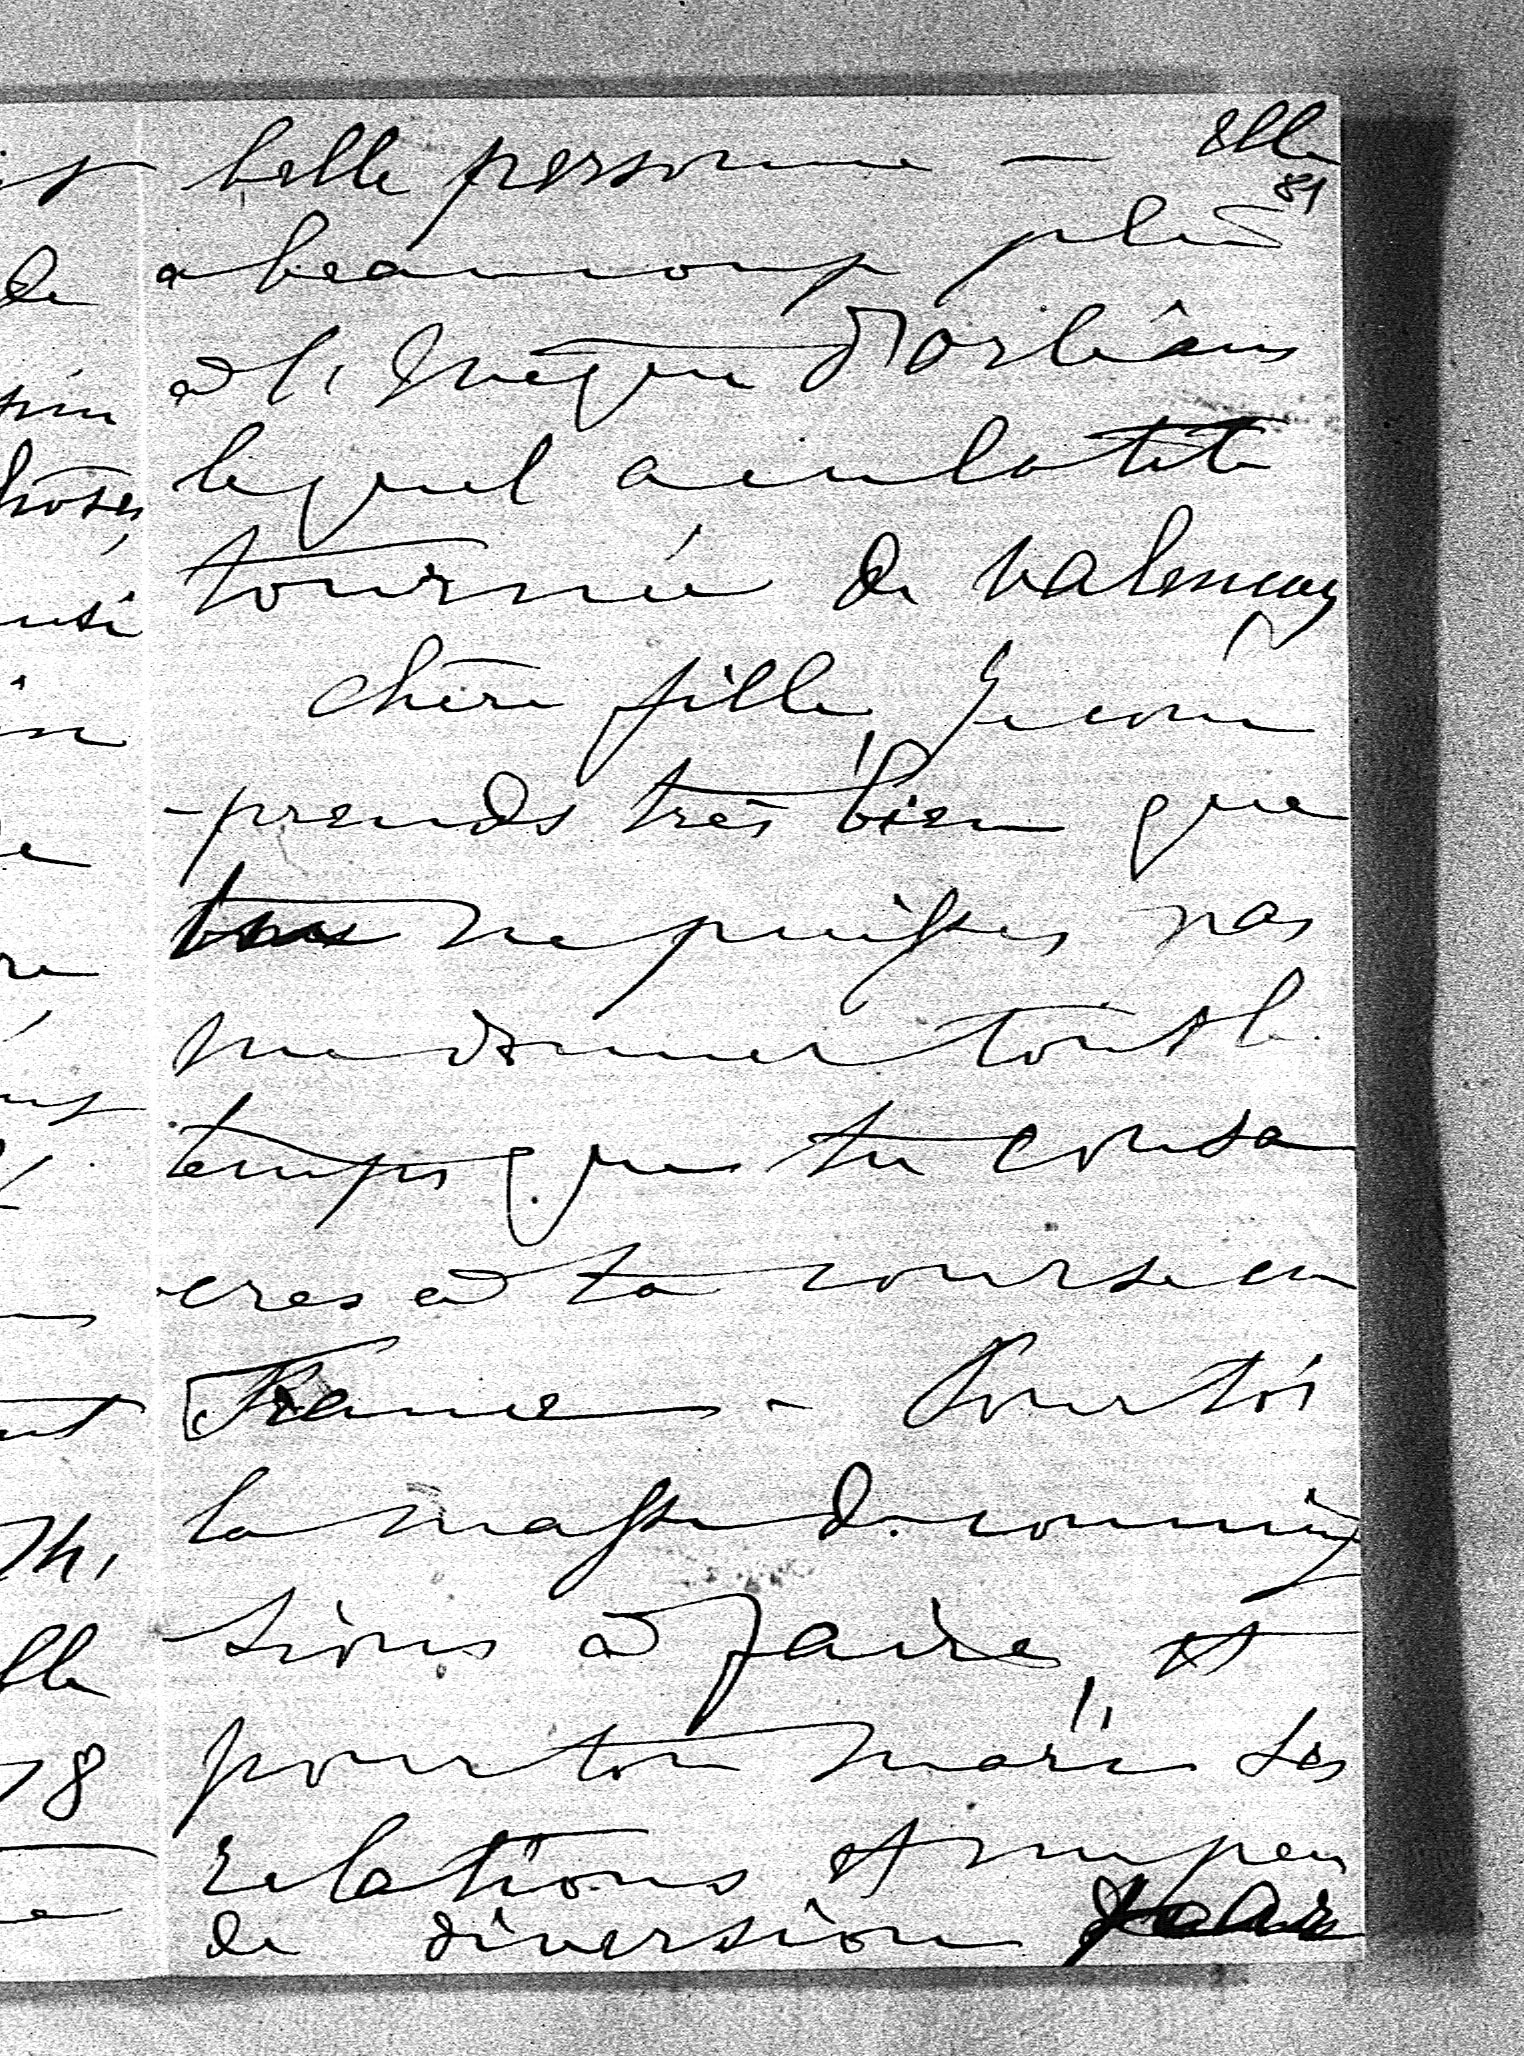 belle personne — Elle
81
a beaucoup plu
à l'Evêque d'Orléans
lequel a eu la tête
tournée de Valençay
chère fille, Je com
-prends très bien que
ne puisses pas
me donner tout le
temps que tu consa
-cres à ta course en
France - Pour toi
la masse de commis
-sions à faire, et
pour ton mari ses
relations, et un peu
de diversion